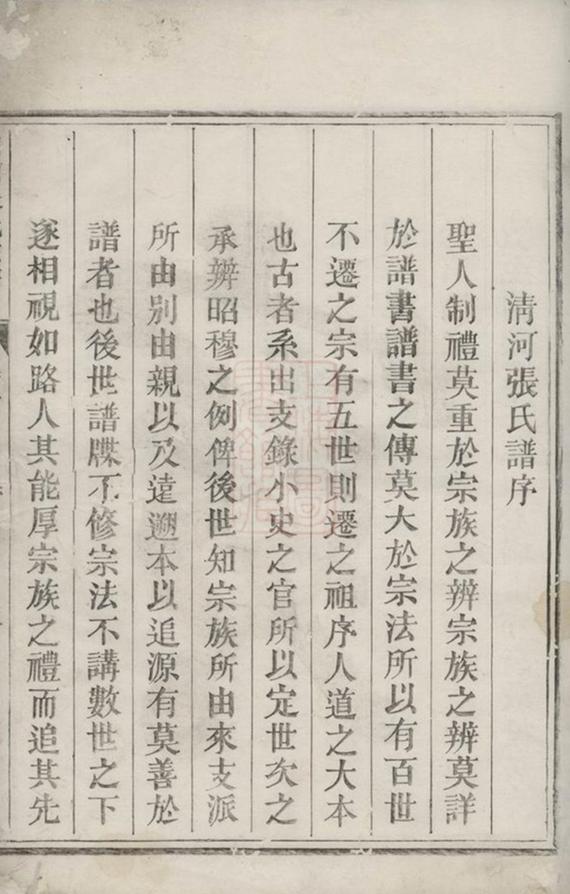 清河張氏譜序
聖人制禮莫重於宗族之辨宗族之辨莫詳
於譜書譜書之傳莫大於宗法所以有百世
不遷之宗有五世則遷之祖序人道之大本
也古者系出支錄小史之官所以定世次之
承辨昭穆之例俾後世知宗族所由來支派
所由别由親以及遠遡本以追源有莫善於
譜者也後世譜牒不修宗法不講數世之下
遂相視如路人其能厚宗族之禮而追其先